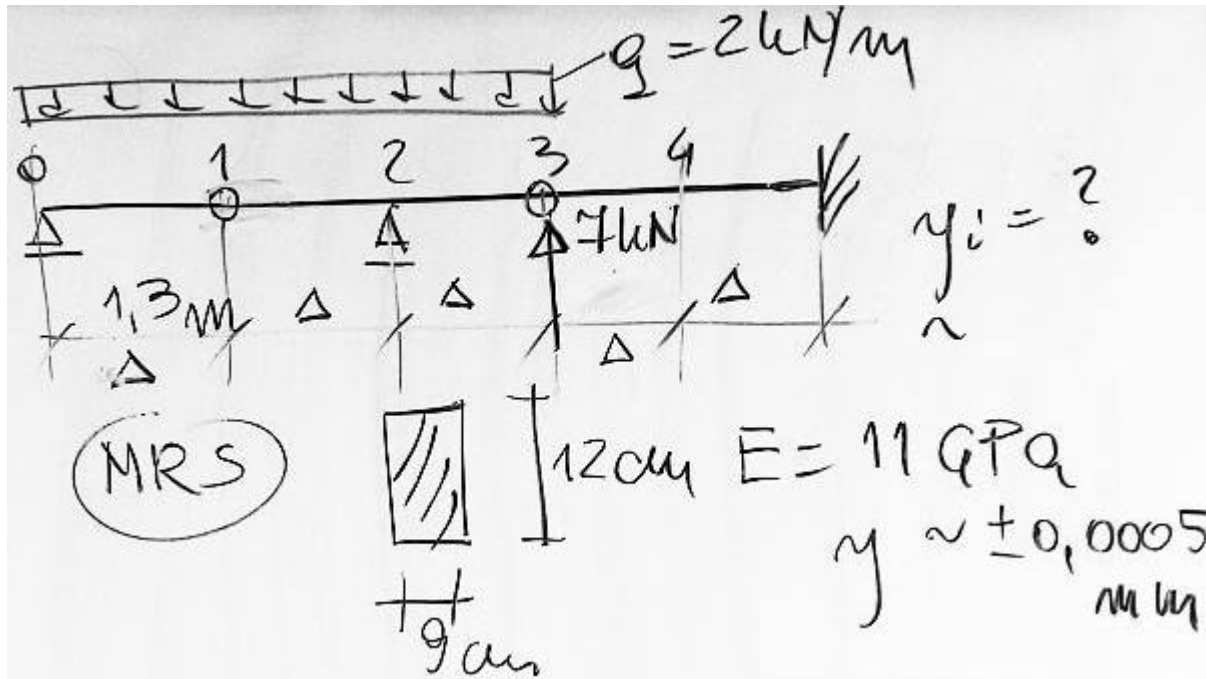 g = 2kN/m
0 1 2 3 4
7kN
yi = ?
~
1,3m Δ Δ Δ
Δ Δ
MRS
12cm
E = 11 GPa
y ~ ±0,0005
mm
9cm